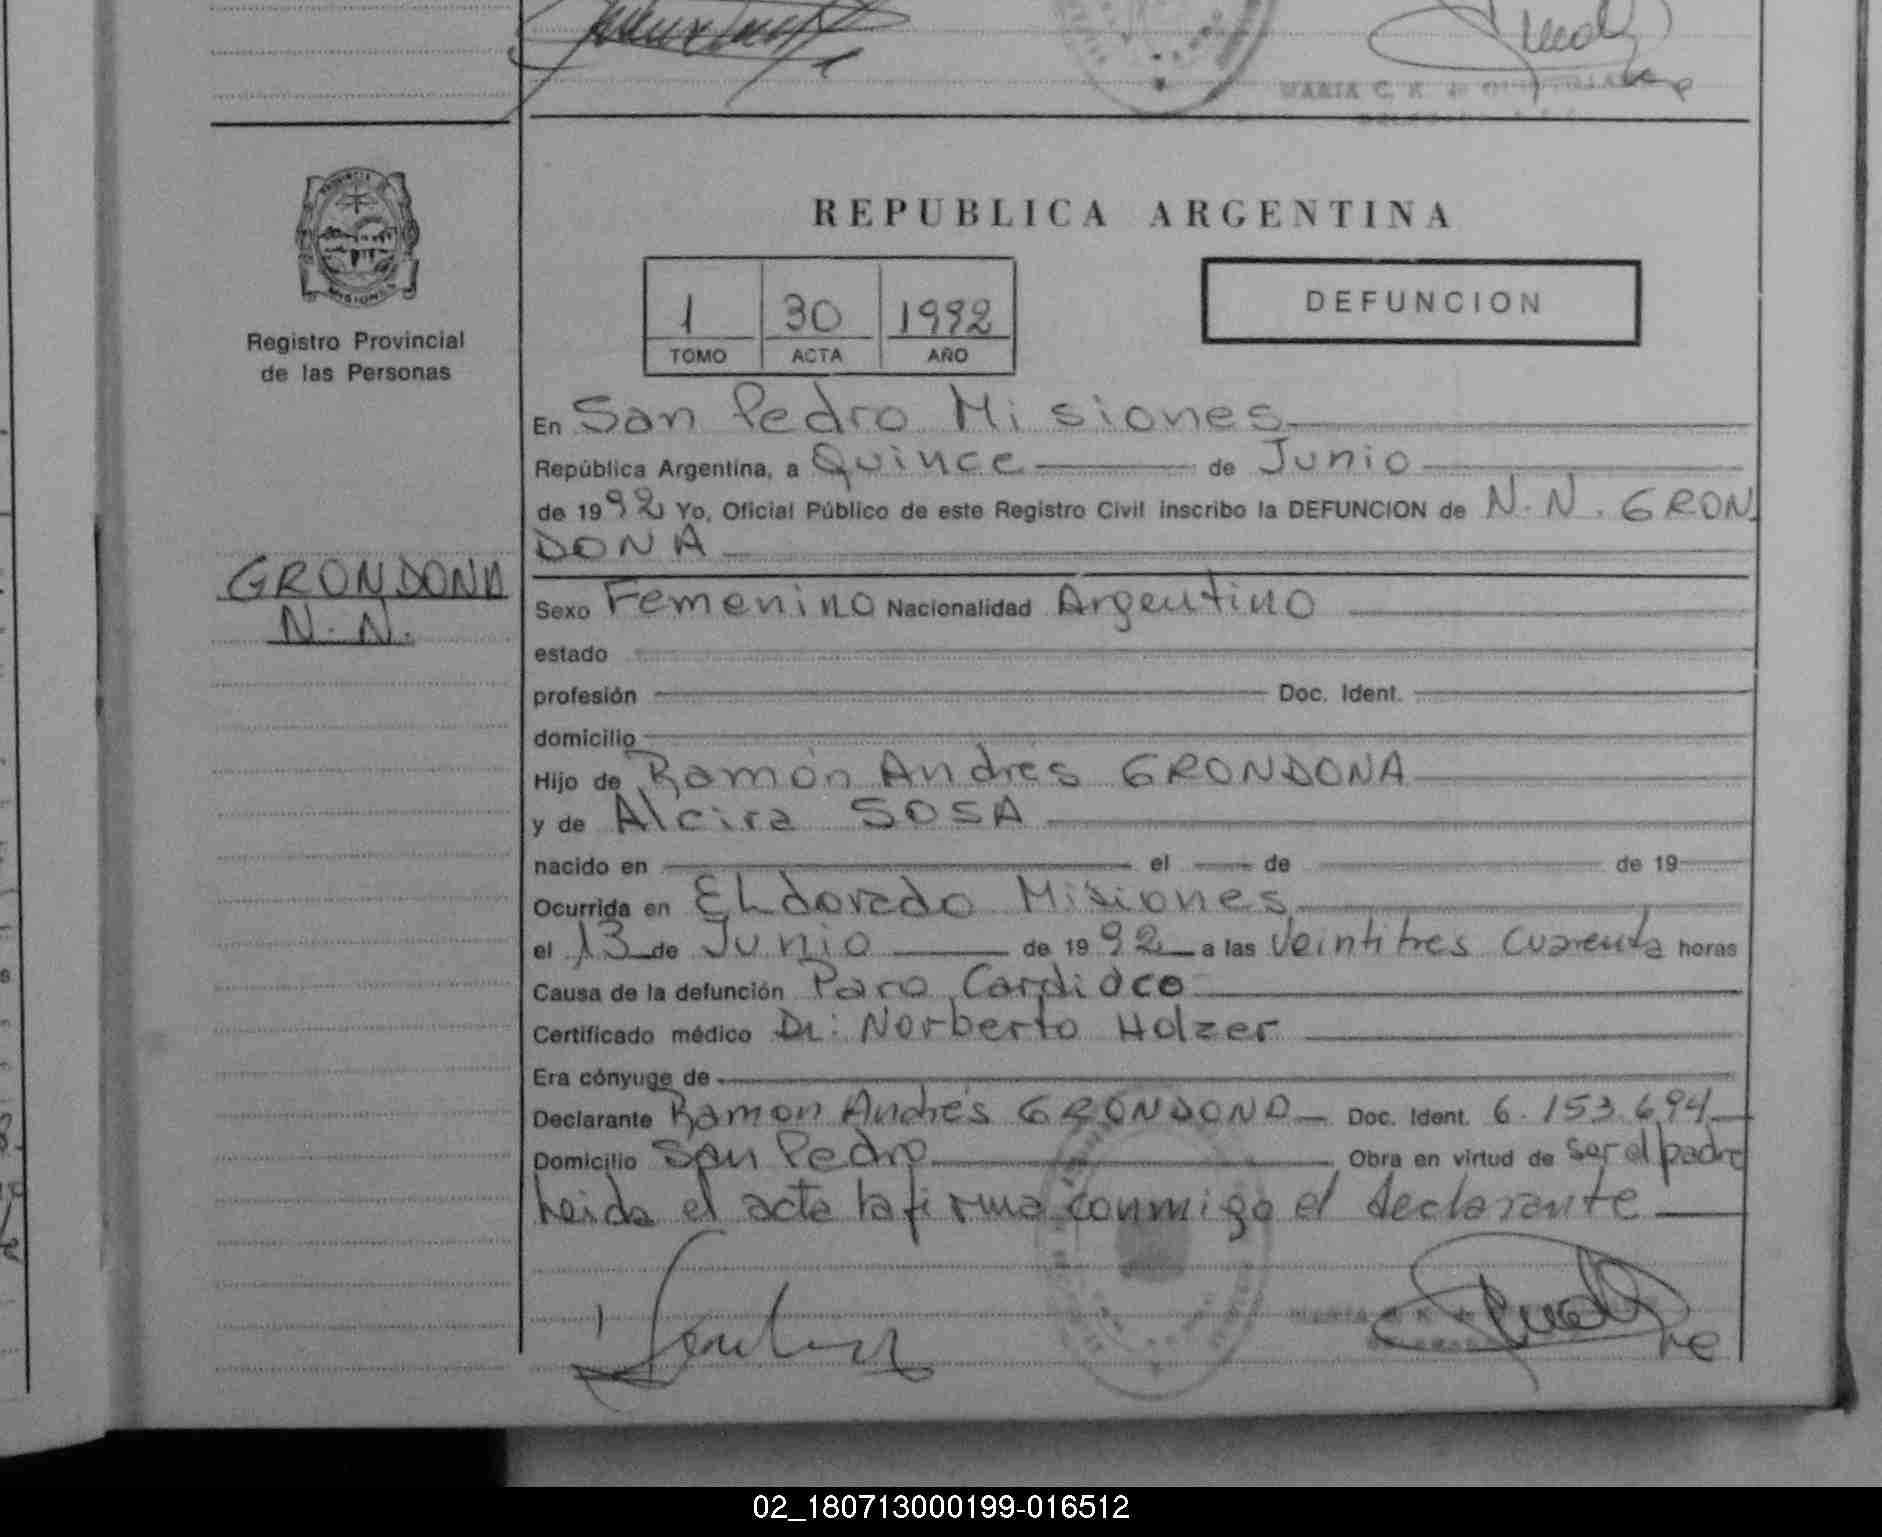 MARIA C. K. de
REPUBLICA ARGENTINA
PROVINCIA DE
MISIONES
Registro Provincial
de las Personas
1 30 1992
TOMO ACTA AÑO
DEFUNCION
En San Pedro Misiones
República Argentina, a Quince de Junio
de 1992 Yo, Oficial Público de este Registro Civil inscribo la DEFUNCION de N.N. GRON
DONA
GRONDONA
N.N.
Sexo Femenino Nacionalidad Argentino
estado
profesión Doc. Ident.
domicilio
Hijo de Ramón Andrés GRONDONA
y de Alcira SOSA
nacido en el de de 19
Ocurrida en ELdorado Misiones
el 13 de Junio de 1992 a las Veintitres Cuarenta horas
Causa de la defunción Paro Cardiaco
Certificado médico Dr: Norberto Holzer
Era cónyuge de
Declarante Ramon Andrés GRONDONA Doc. Ident. 6.153.694
Domicilio San Pedro Obra en virtud de ser el padre
Leida el acta la firma conmigo el declarante
02_180713000199-016512